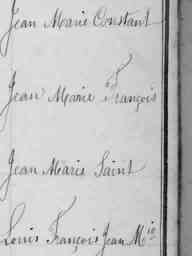 Jean Marie Constant
Jean Marie François
Jean Marie Saint
Louis François Jean M.ie